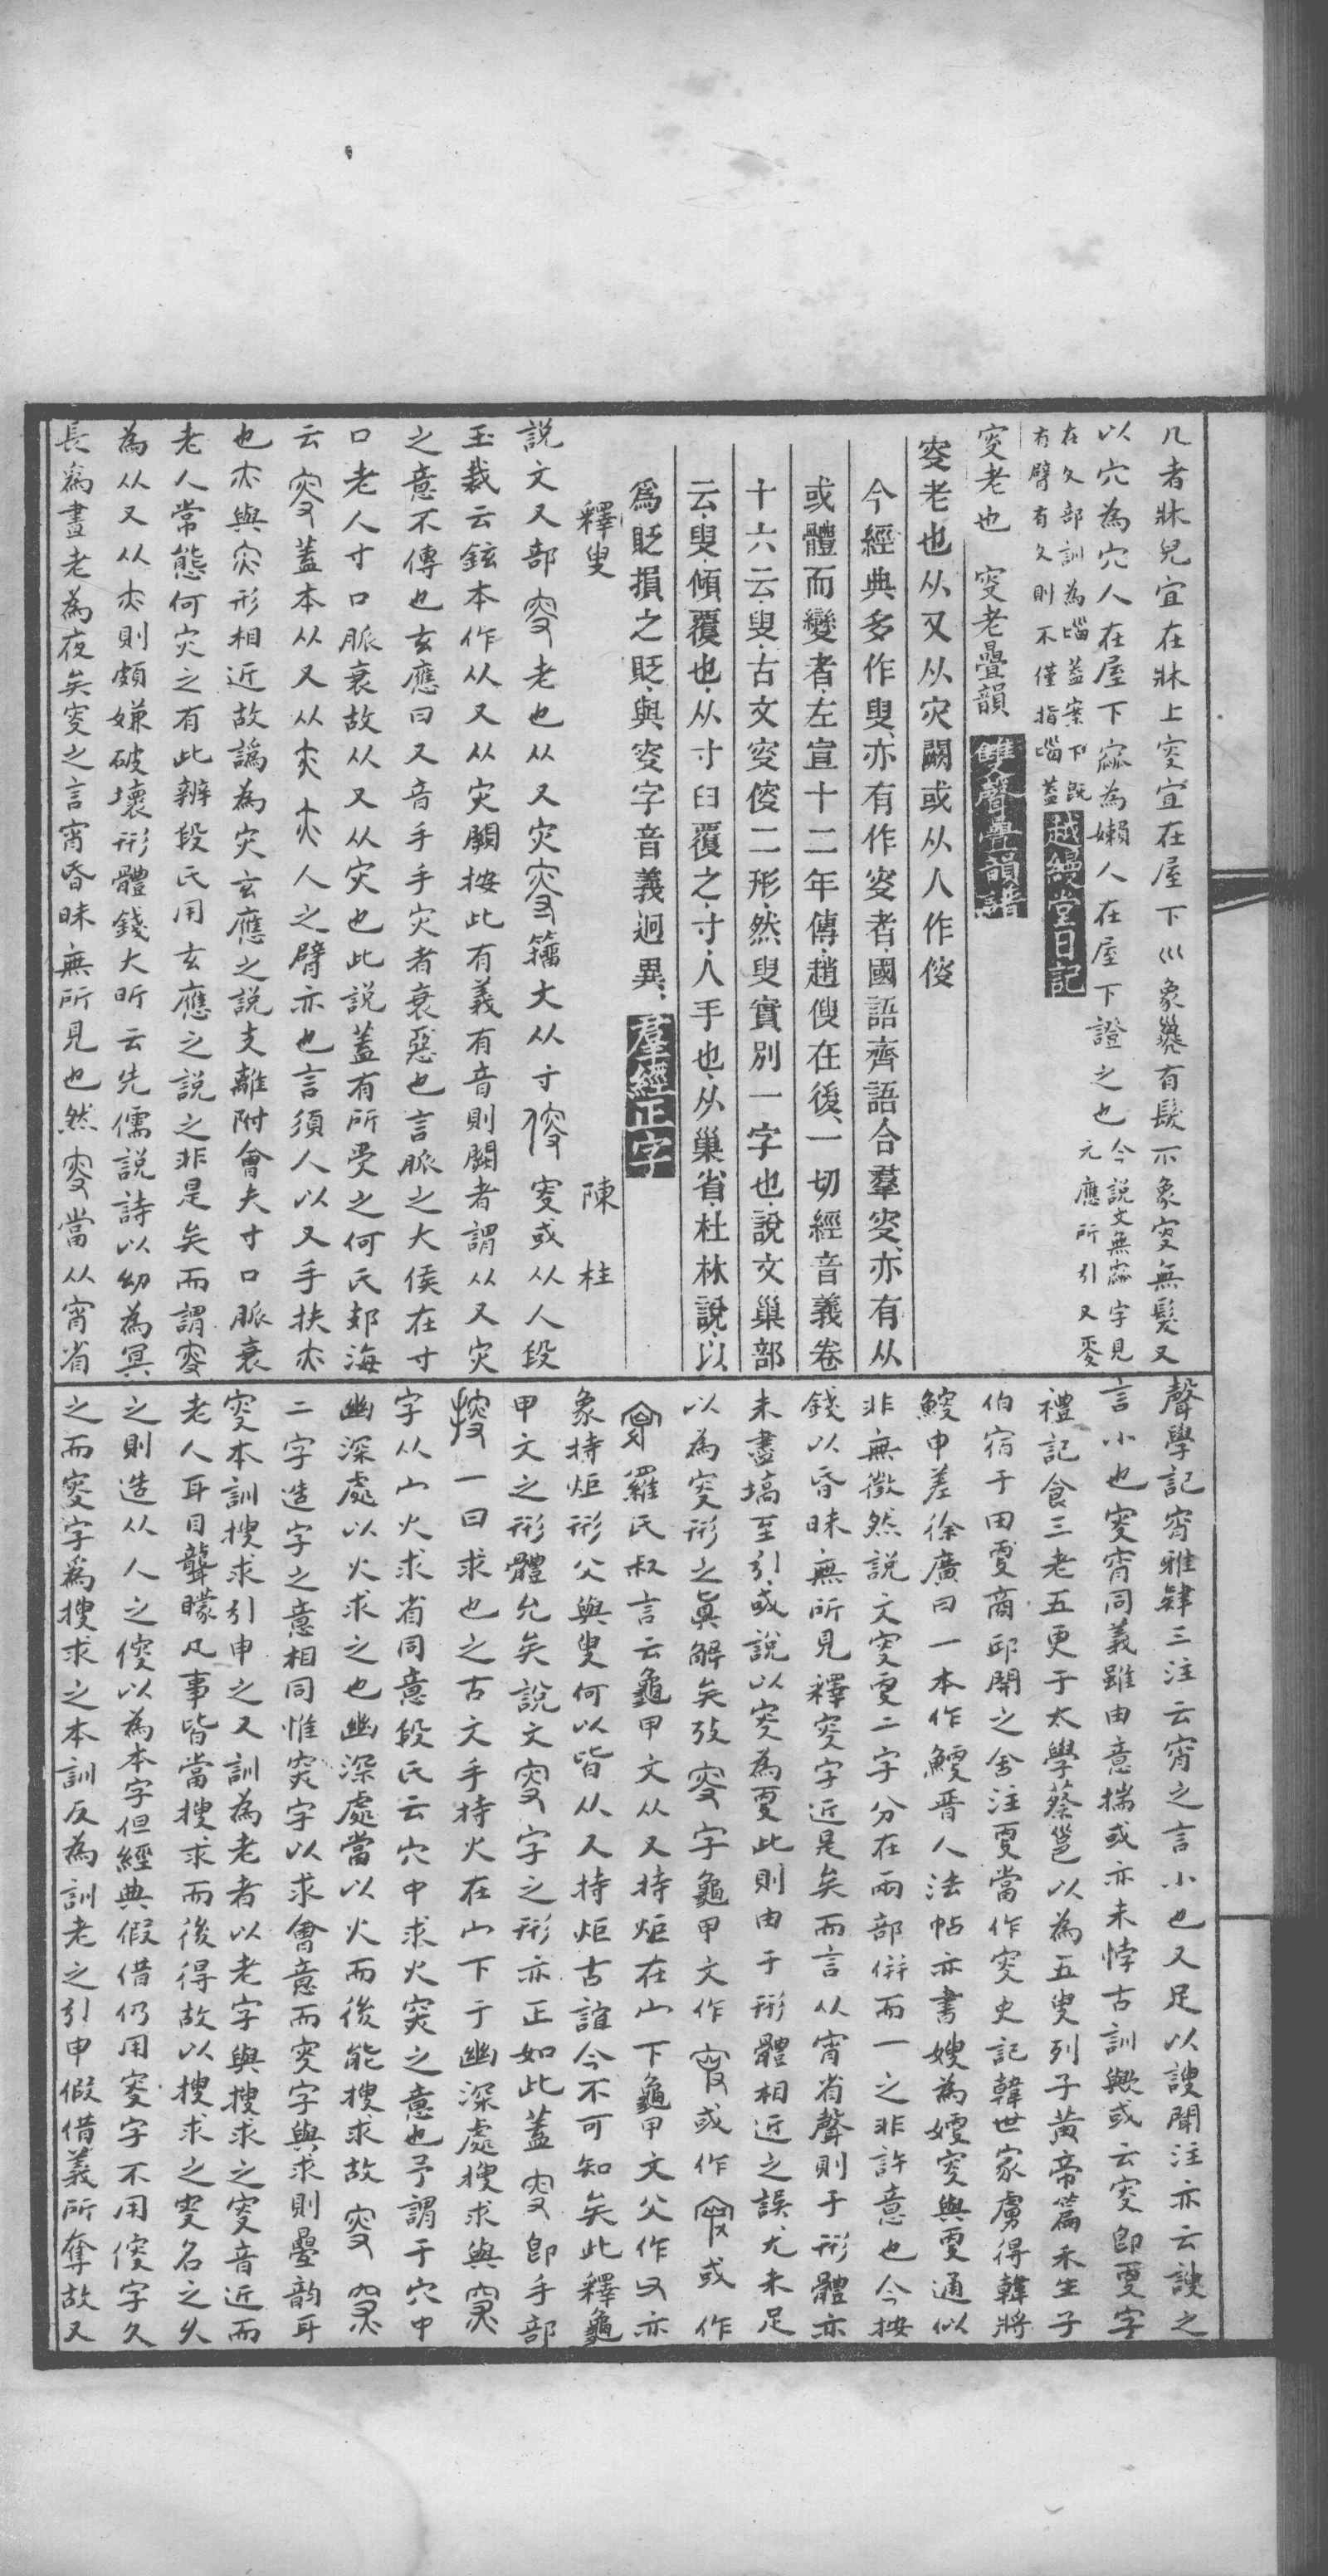 几者牀皃宜在牀上叜宜在屋下巛象𡿺有髮不象叜無髮又
以穴為穴人在屋下寙為嬾人在屋下證之也今說文無寙字見元應所引又夌
在夊部訓為𡿺蓋案下既有臂有夊則不僅指𡿺蓋越縵堂日記
叜老也　叜老疊韻雙聲疊韻譜
叜老也从又从灾闕或从人作傁
今經典多作叟亦有作叜者國語齊語合羣叜亦有从
或體而變者左宣十二年傳趙傁在後一切經音義卷
十六云叟古文叜傁二形然叟實別一字也說文巢部
云叟傾覆也从寸臼覆之寸人手也从巢省杜林說以
爲貶損之貶與叜字音義迥異羣經正字
釋叟　陳柱
說文又部叜老也从又灾㕛籒大从寸傁叜或从人段
玉裁云鉉本作从又从灾闕按此有義有音則闕者謂从又灾
之意不傳也玄應曰又音手手灾者衰惡也言脈之大侯在寸
口老人寸口脈衰故从又从灾也此說蓋有所受之何氏郊海
云叜蓋本从又从㚒㚒人之臂亦也言須人以又手扶㚒
也㚒與灾形相近故譌為灾玄應之說支離附會夫寸口脈衰
老人常態何灾之有此辨段氏用玄應之說之非是矣而謂叜
為从又从㚒則頗嫌破壞形體錢大昕云先儒說詩以幼為冥
長爲晝老為夜矣叜之言宵昏昧無所見也然叜當从宵省
聲學記宵雅肄三注云宵之言小也又足以謏聞注亦云謏之
言小也叜宵同義雖由意揣或亦未悖古訓歟或云叜即㪅字
禮記食三老五更于太學蔡邕以為五叟列子黃帝篇禾生子
伯宿于田㪅商邱開之舍注㪅當作叜史記韓世家虜得韓將
鰠申差徐廣曰一本作鯁晉人法帖亦書嫂為㛐叜與㪅通似
非無徵然說文叜㪅二字分在兩部併而一之非許意也今按
錢以昏昧無所見釋叜字近是矣而言从宵省聲則于形體亦
未盡塙至引或說以叜為㪅此則由于形體相近之誤尤未足
以為叜形之眞解矣攷叜字龜甲文作　或作　或作
　羅氏叔言云龜甲文从又持炬在山下龜甲文父作　亦
象持炬形父與叟何以皆从又持炬古誼今不可知矣此釋龜
甲文之形體允矣說文叜字之形亦正如此蓋叜即手部
㨮一曰求也之古文手持火在山下于幽深處搜求與㝥
字从山火求省同意段氏云穴中求火㝥之意也予謂于穴中
幽深處以火求之也幽深處當以火而後能搜求故叜㝥
二字造字之意相同惟㝥字以求會意而叜字與求則疊韵耳
叜本訓搜求引申之又訓為老者以老字與搜求之叜音近而
老人耳目聾矇凡事皆當搜求而後得故以搜求之叜名之久
之則造从人之傁以為本字但經典假借仍用叜字不用傁字久
之而叜字爲搜求之本訓反為訓老之引申假借義所奪故又